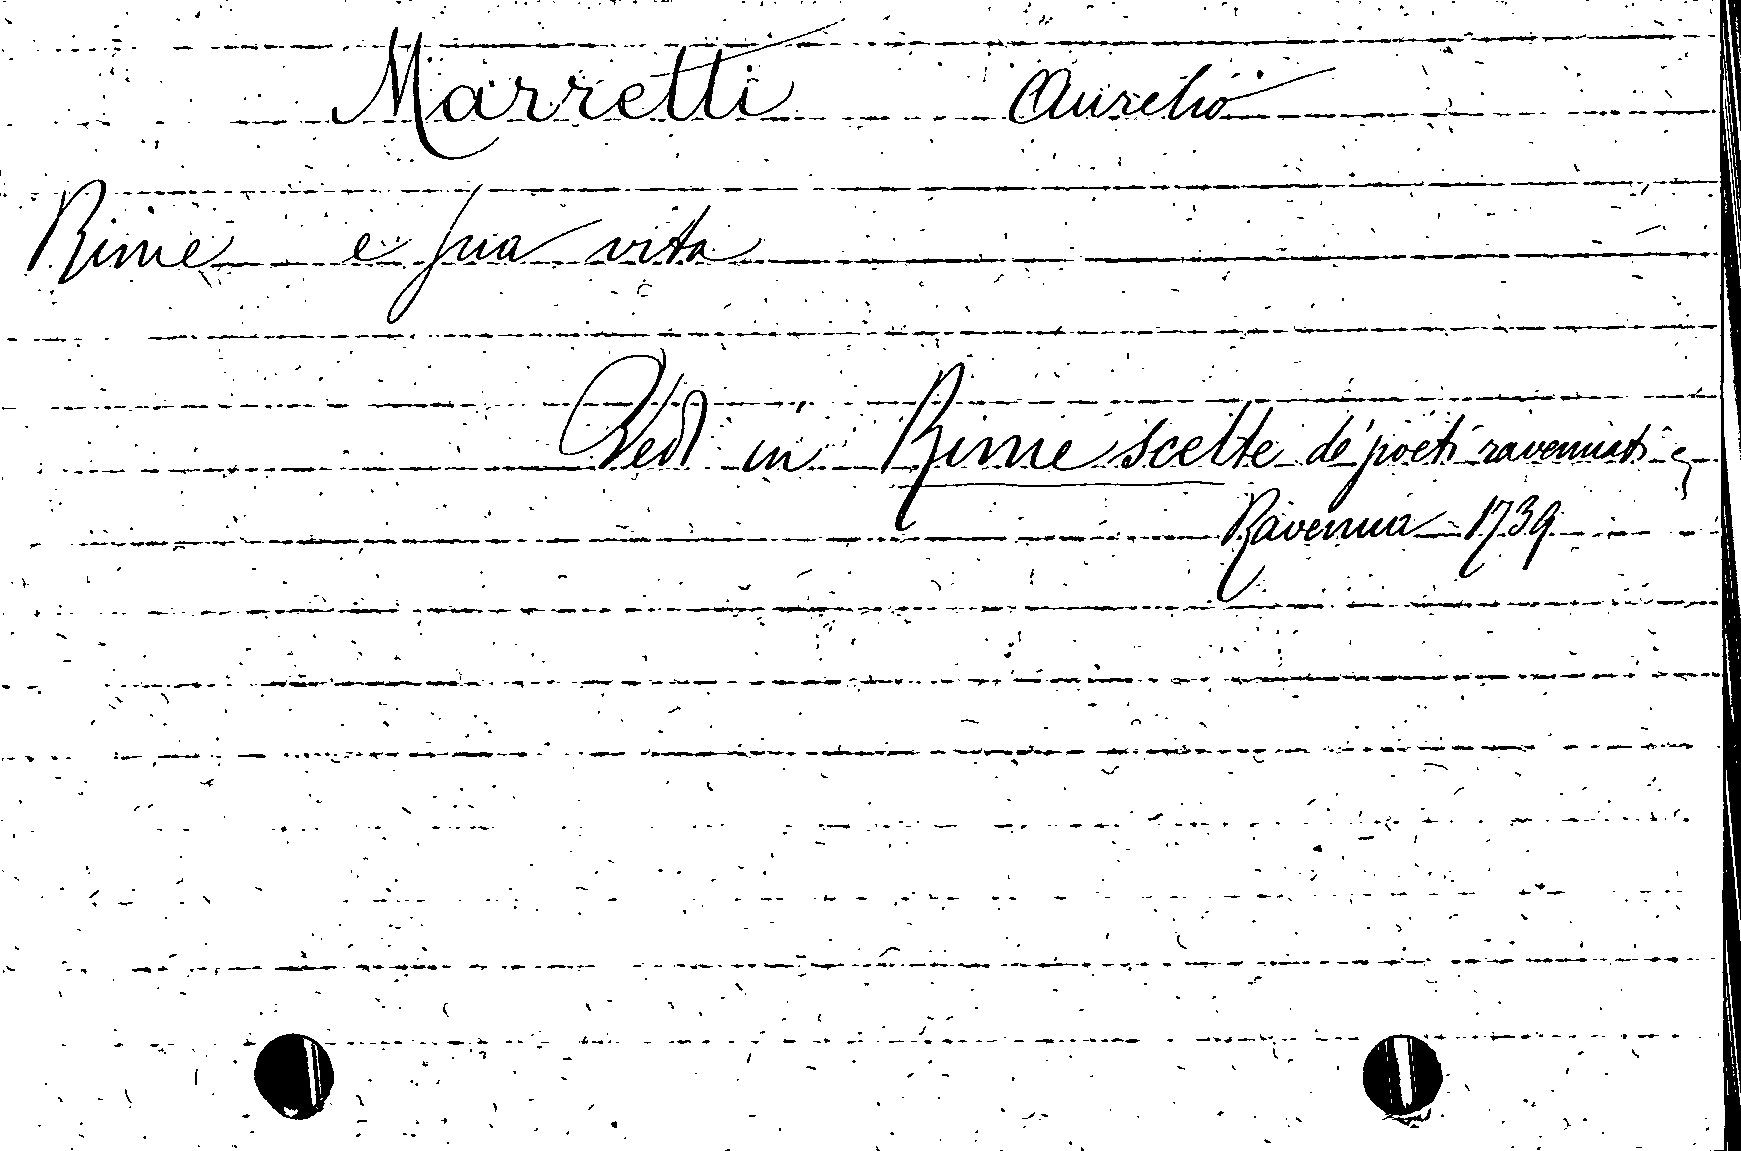 Marretti Aurelio
Rime e sua vita
Vedi in Rime scelte de' poeti ravennati &
Ravenna 1739